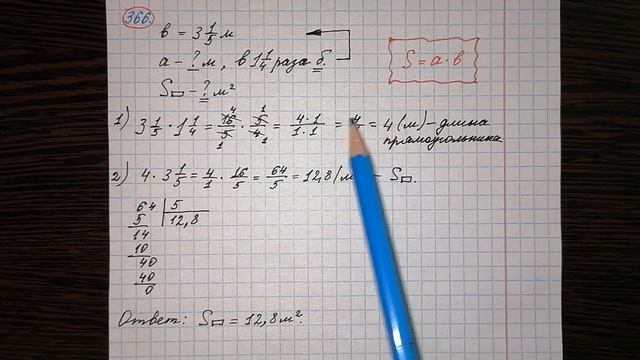 366.
в = 3 1/5 м
а - ? м, в 1 1/4 раза б.
S▭ - ? м²
S = а · в
1) 3 1/5 · 1 1/4 = 16/5 · 5/4 = 4·1/1·1 = 4/1 = 4 (м) - длина
прямоугольника
2) 4 · 3 1/5 = 4/1 · 16/5 = 64/5 = 12,8 (м - S▭.
64 | 5
5 | 12,8
14
10
40
40
0
Ответ: S▭ = 12,8 м².